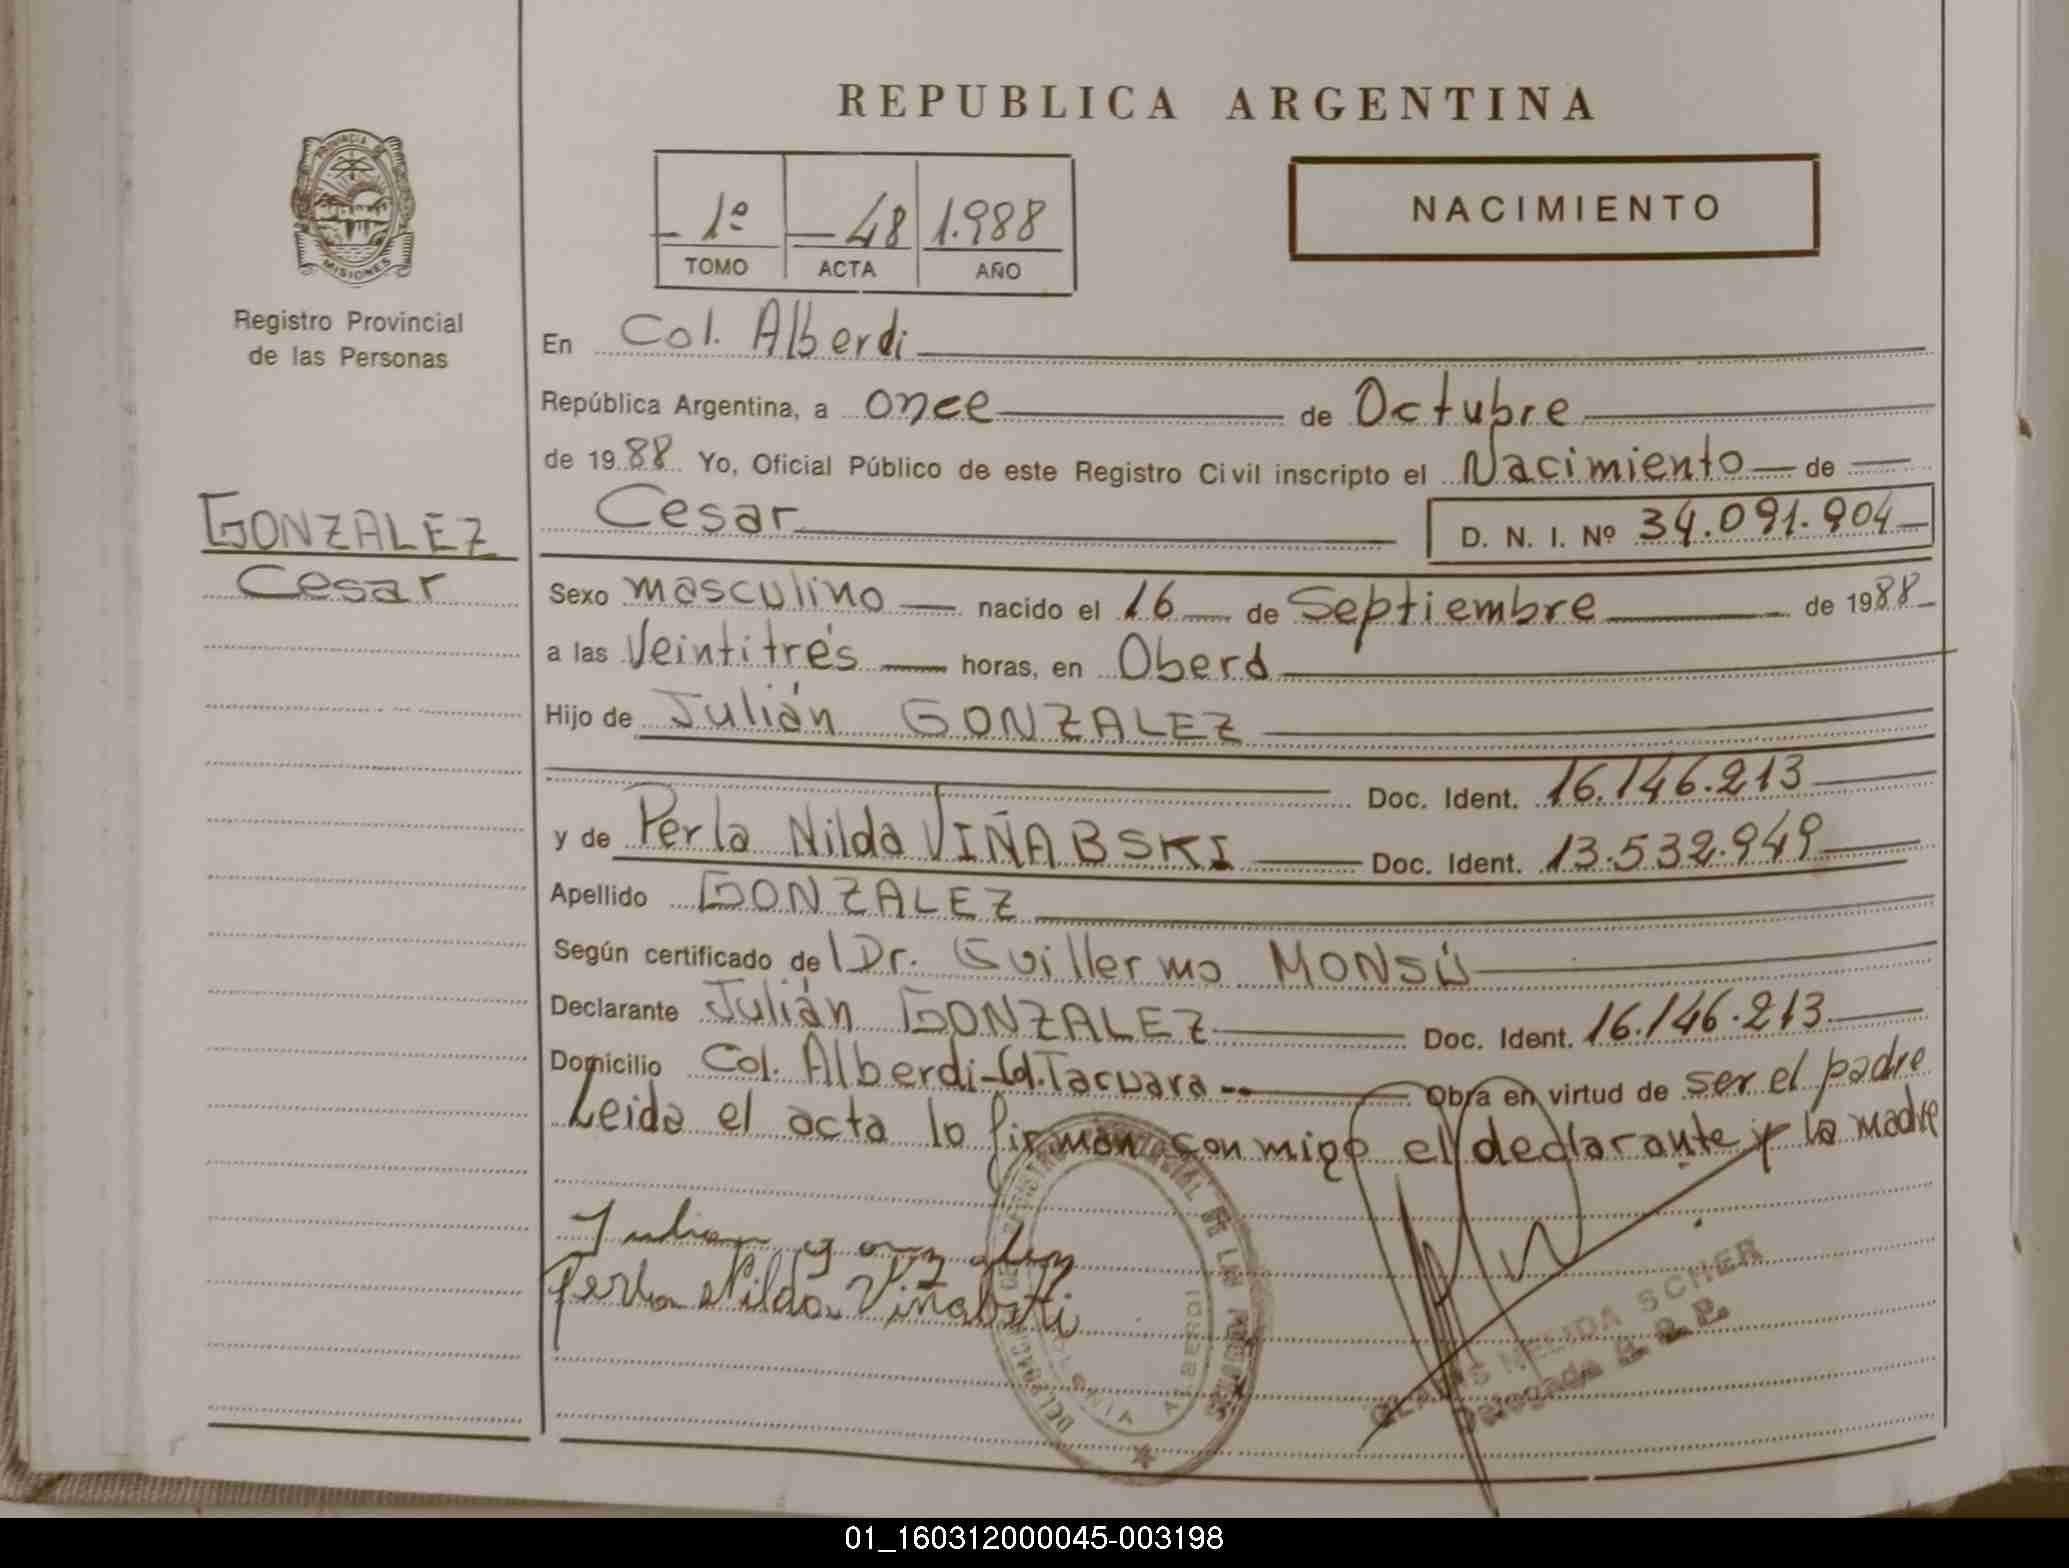 REPUBLICA ARGENTINA
PROVINCIA DE
MISIONES
Registro Provincial
de las Personas
1º — 48 1.988
TOMO ACTA AÑO
NACIMIENTO
GONZALEZ
Cesar
En Col. Alberdi
República Argentina, a once de Octubre
de 1988 Yo, Oficial Público de este Registro Civil inscripto el Nacimiento — de —
Cesar D. N. I. Nº 34.091.904
Sexo masculino — nacido el 16 — de Septiembre de 1988
a las Veintitrés — horas, en Oberá
Hijo de Julián GONZALEZ
Doc. Ident. 16.146.213
y de Perla Nilda VIÑABSKI Doc. Ident. 13.532.949
Apellido GONZALEZ
Según certificado del Dr. Guillermo MONSÚ
Declarante Julián GONZALEZ Doc. Ident. 16.146.213
Domicilio Col. Alberdi-Col.Tacuara -- Obra en virtud de ser el padre
Leida el acta lo firman conmigo el declarante y la madre
Julian gonzalez
Perla Nilda Viñabski
COLONIA ALBERDI
GLADIS NELIDA SCHER
Delegada R. P. P.
01_160312000045-003198